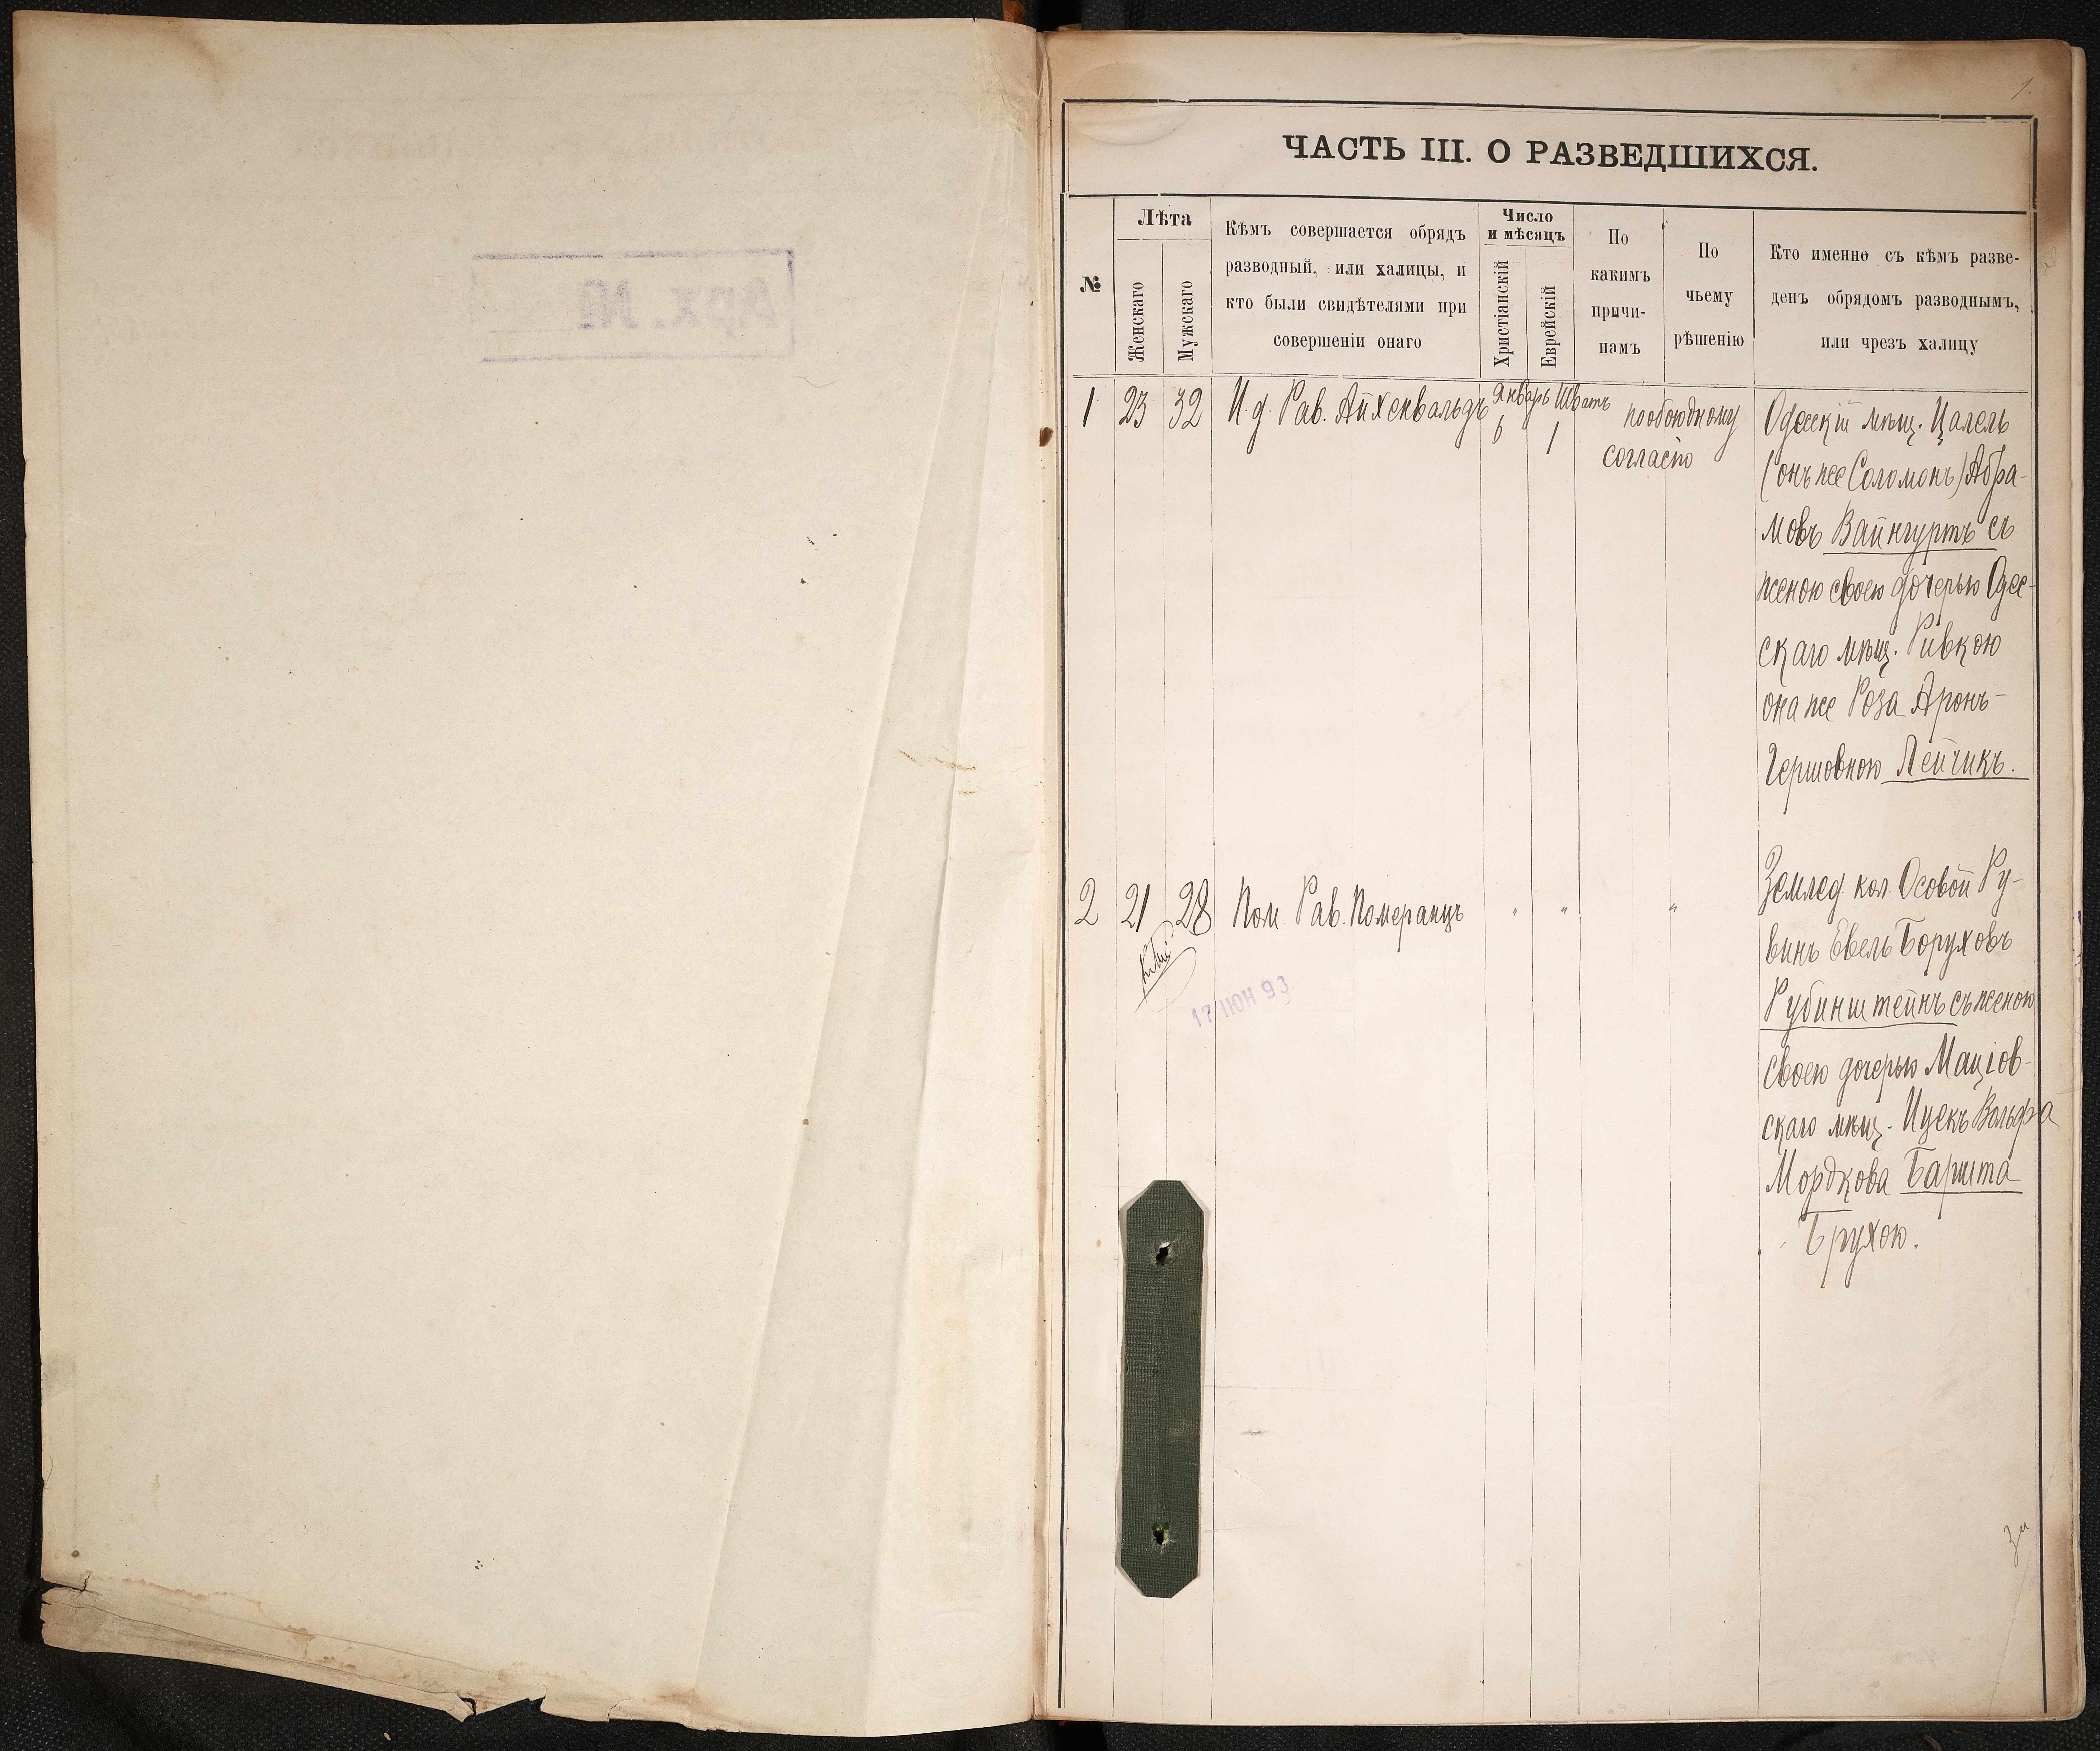 Арх. №
1.
ЧАСТЬ III. О РАЗВЕДШИХСЯ.
№
Лѣта
Женскаго
Мужскаго
Кѣмъ совершается обрядъ
разводный, или халицы, и
кто были свидѣтелями при
совершеніи онаго
Число
и мѣсяцъ
Христіанскій
Еврейскій
По
какимъ
причи-
намъ
По
чьему
рѣшенію
Кто именно съ кѣмъ разве-
денъ обрядомъ разводнымъ,
или чрезъ халицу
1 23 32 И. д. Рав. Айхенвальдъ
Январь Шватъ
6 1
по обоюдному
согласію
Одесскій мѣщ. Цалель
(онъ же Соломонъ) Абра-
мовъ Вайнгуртъ съ
женою своею дочерью Одес-
скаго мѣщ. Ривкою
она же Роза Аронъ-
Гершовною Лейчикъ.
2 21 28 Пом. Рав. Померанцъ " " "
17 ІЮН 93
Землед. кол. Осовой Ру-
винъ Евель Боруховъ
Рубинштейнъ съ женою
своею дочерью Маціов-
скаго мѣщ. Ицекъ Вольфа
Мордкова Баршта
Брухою.